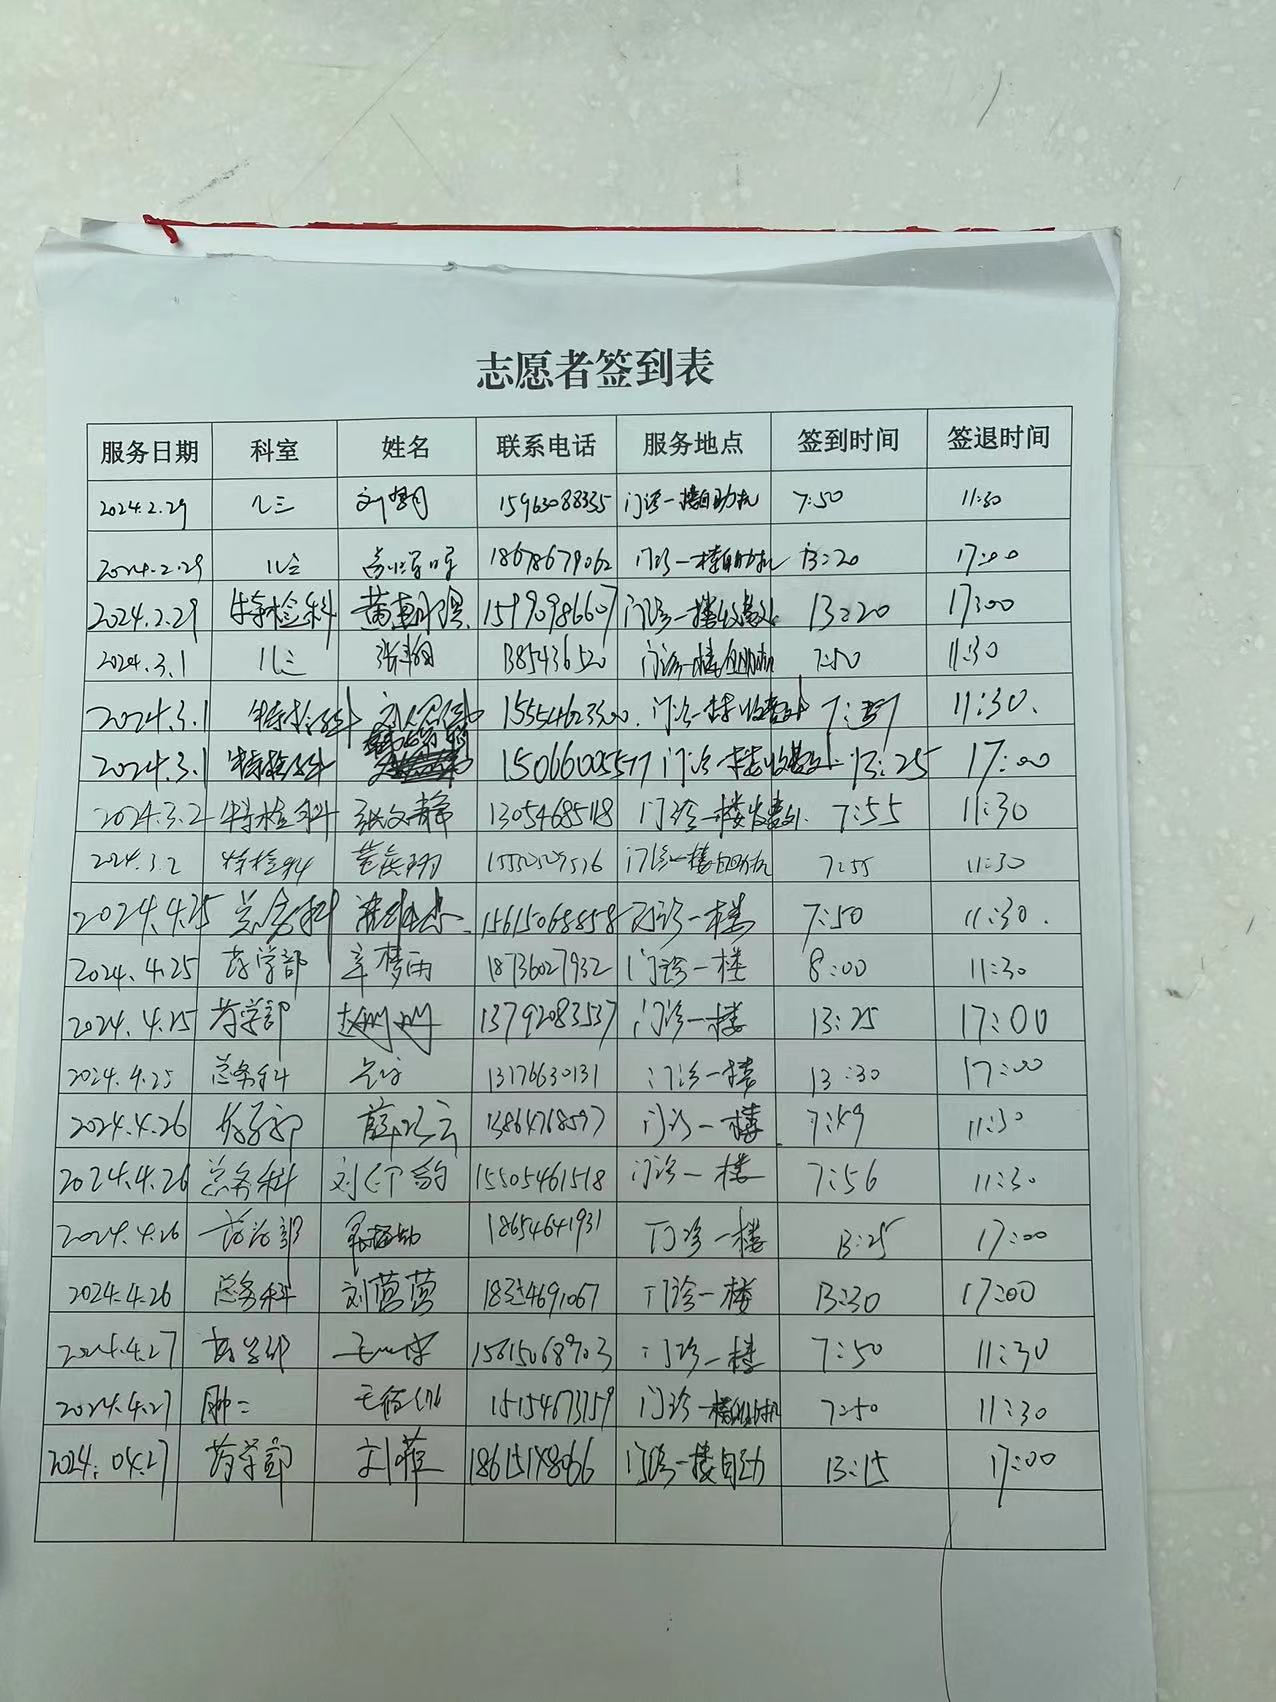 志愿者签到表
服务日期 科室 姓名 联系电话 服务地点 签到时间 签退时间
2024.2.29 儿三 15963088335 门诊一楼自助机 7:50 11:30
2024.2.29 儿三 18678679062 门诊一楼自助机 13:20 17:00
2024.2.29 特检科 15990986607 门诊一楼收费处 13:20 17:00
2024.3.1 儿三 门诊一楼自助机 7:50 11:30
2024.3.1 特检科 15554623300 门诊一楼收费处 11:30.
2024.3.1 特检科 15066100557 门诊一楼收费处 13:25 17:00
2024.3.2 特检科 张文静 13054685118 门诊一楼收费处 7:55 11:30
2024.3.2 特检科 门诊一楼自助机 7:55 11:30
2024.4.25 总务科 15615068858 门诊一楼 7:50 11:30.
2024.4.25 药学部 辛梦雨 18736027932 门诊一楼 8:00 11:30
2024.4.25 药学部 赵娜娜 13792083537 门诊一楼 13:25 17:00
2024.4.25 总务科 13176630131 门诊一楼 13:30 17:00
2024.4.26 药学部 13864768597 门诊一楼 7:49 11:30
2024.4.26 总务科 15505461518 门诊一楼 7:56 11:30
2024.4.26 18654641931 门诊一楼 13:25 17:00
2024.4.26 总务科 刘莹莹 18354691067 门诊一楼 13:30 17:00
2024.4.27 药学部 15615068703 门诊一楼 7:50 11:30
2024.4.27 肿二 15154673759 门诊一楼自助机 7:50 11:30
2024.04.27 药学部 刘菲 18615148066 门诊一楼自助 13:15 17:00